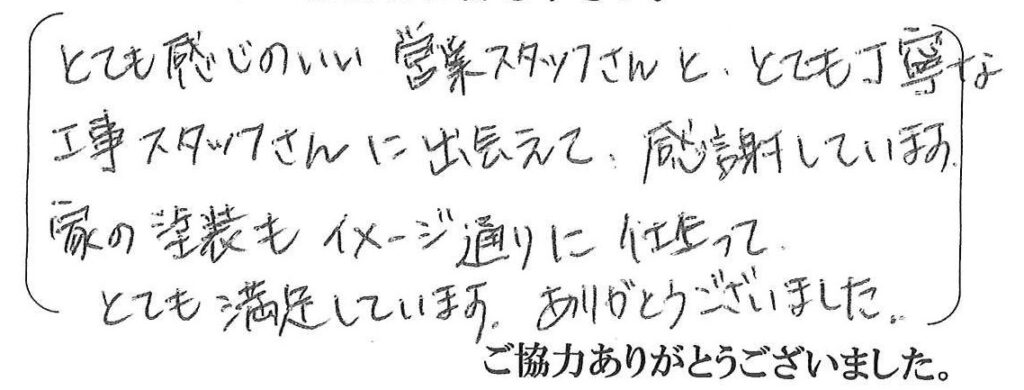 とても感じのいい営業スタッフさんと、とても丁寧な
工事スタッフさんに出会えて、感謝しています。
家の塗装もイメージ通りに仕上って
とても満足しています。ありがとうございました。
ご協力ありがとうございました。